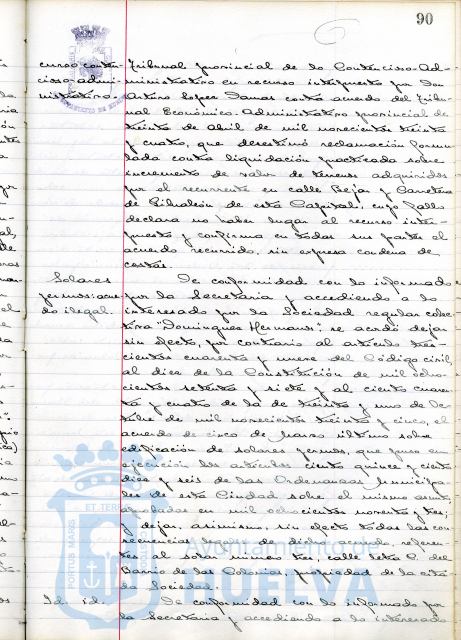 90
curso conten-
cioso admi-
nistrativo.
Tribunal provincial de lo Contencioso-Ad-
ministrativo en recurso interpuesto por Don
Arturo López Damas contra acuerdo del Tribu-
nal Económico-Administrativo provincial de
treinta de Abril de mil novecientos treinta
y cuatro, que desestimó reclamación formu-
lada contra liquidación practicada sobre
incremento de valor de terrenos adquiridos
por el recurrente en calle Bejar y Carretera
de Gibraleón de esta Capital; cuyo fallo
declara no haber lugar al recurso inter-
puesto y confirma en todas sus partes el
acuerdo recurrido, sin expresa condena de
costas.
Solares
yermos: acuer-
do ilegal.
De conformidad con lo informado
por la Secretaría y accediendo a lo
interesado por la Sociedad regular colec-
tiva "Domínguez Hermanos", se acordó dejar
sin efecto, por contrario al artículo tres-
cientos cuarenta y nueve del Código civil,
al diez de la Constitución de mil ocho-
cientos setenta y siete y al ciento cuaren-
ta y cuatro de la de treinta y uno de Oc-
tubre de mil novecientos treinta y cinco, el
acuerdo de cinco de Marzo último sobre
edificación de solares yermos, que puso en
ejecución los artículos ciento quince y ciento
diez y seis de las Ordenanzas Municipa-
les de esta Ciudad sobre el mismo asunto
aprobadas en mil ochocientos noventa y tres;
y dejar, asimismo, sin efecto todas las con-
secuencias legales de dicho acuerdo, referen-
tes al solar número tres, calle letra C. del
Barrio de las Colonias, propiedad de la cita-
da Sociedad.
Id. id.
De conformidad con lo informado por
la Secretaría y accediendo a lo interesado
Ayuntamiento de
HUELVA
PORTUS MARIS
ET TERRAE